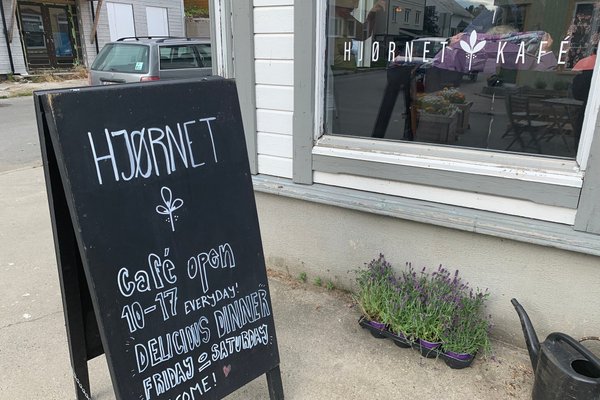 HJØRNET KAFÉ
HJØRNET
Café open
10-17 EVERYDAY!
DELICIOUS DINNER
FRIDAY & SATURDAY
WELCOME!